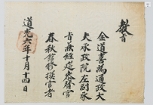 金道喜為通政大
夫承政院左副承
旨兼經筵參贊官
春秋館修撰官者
道光六年十月十四日